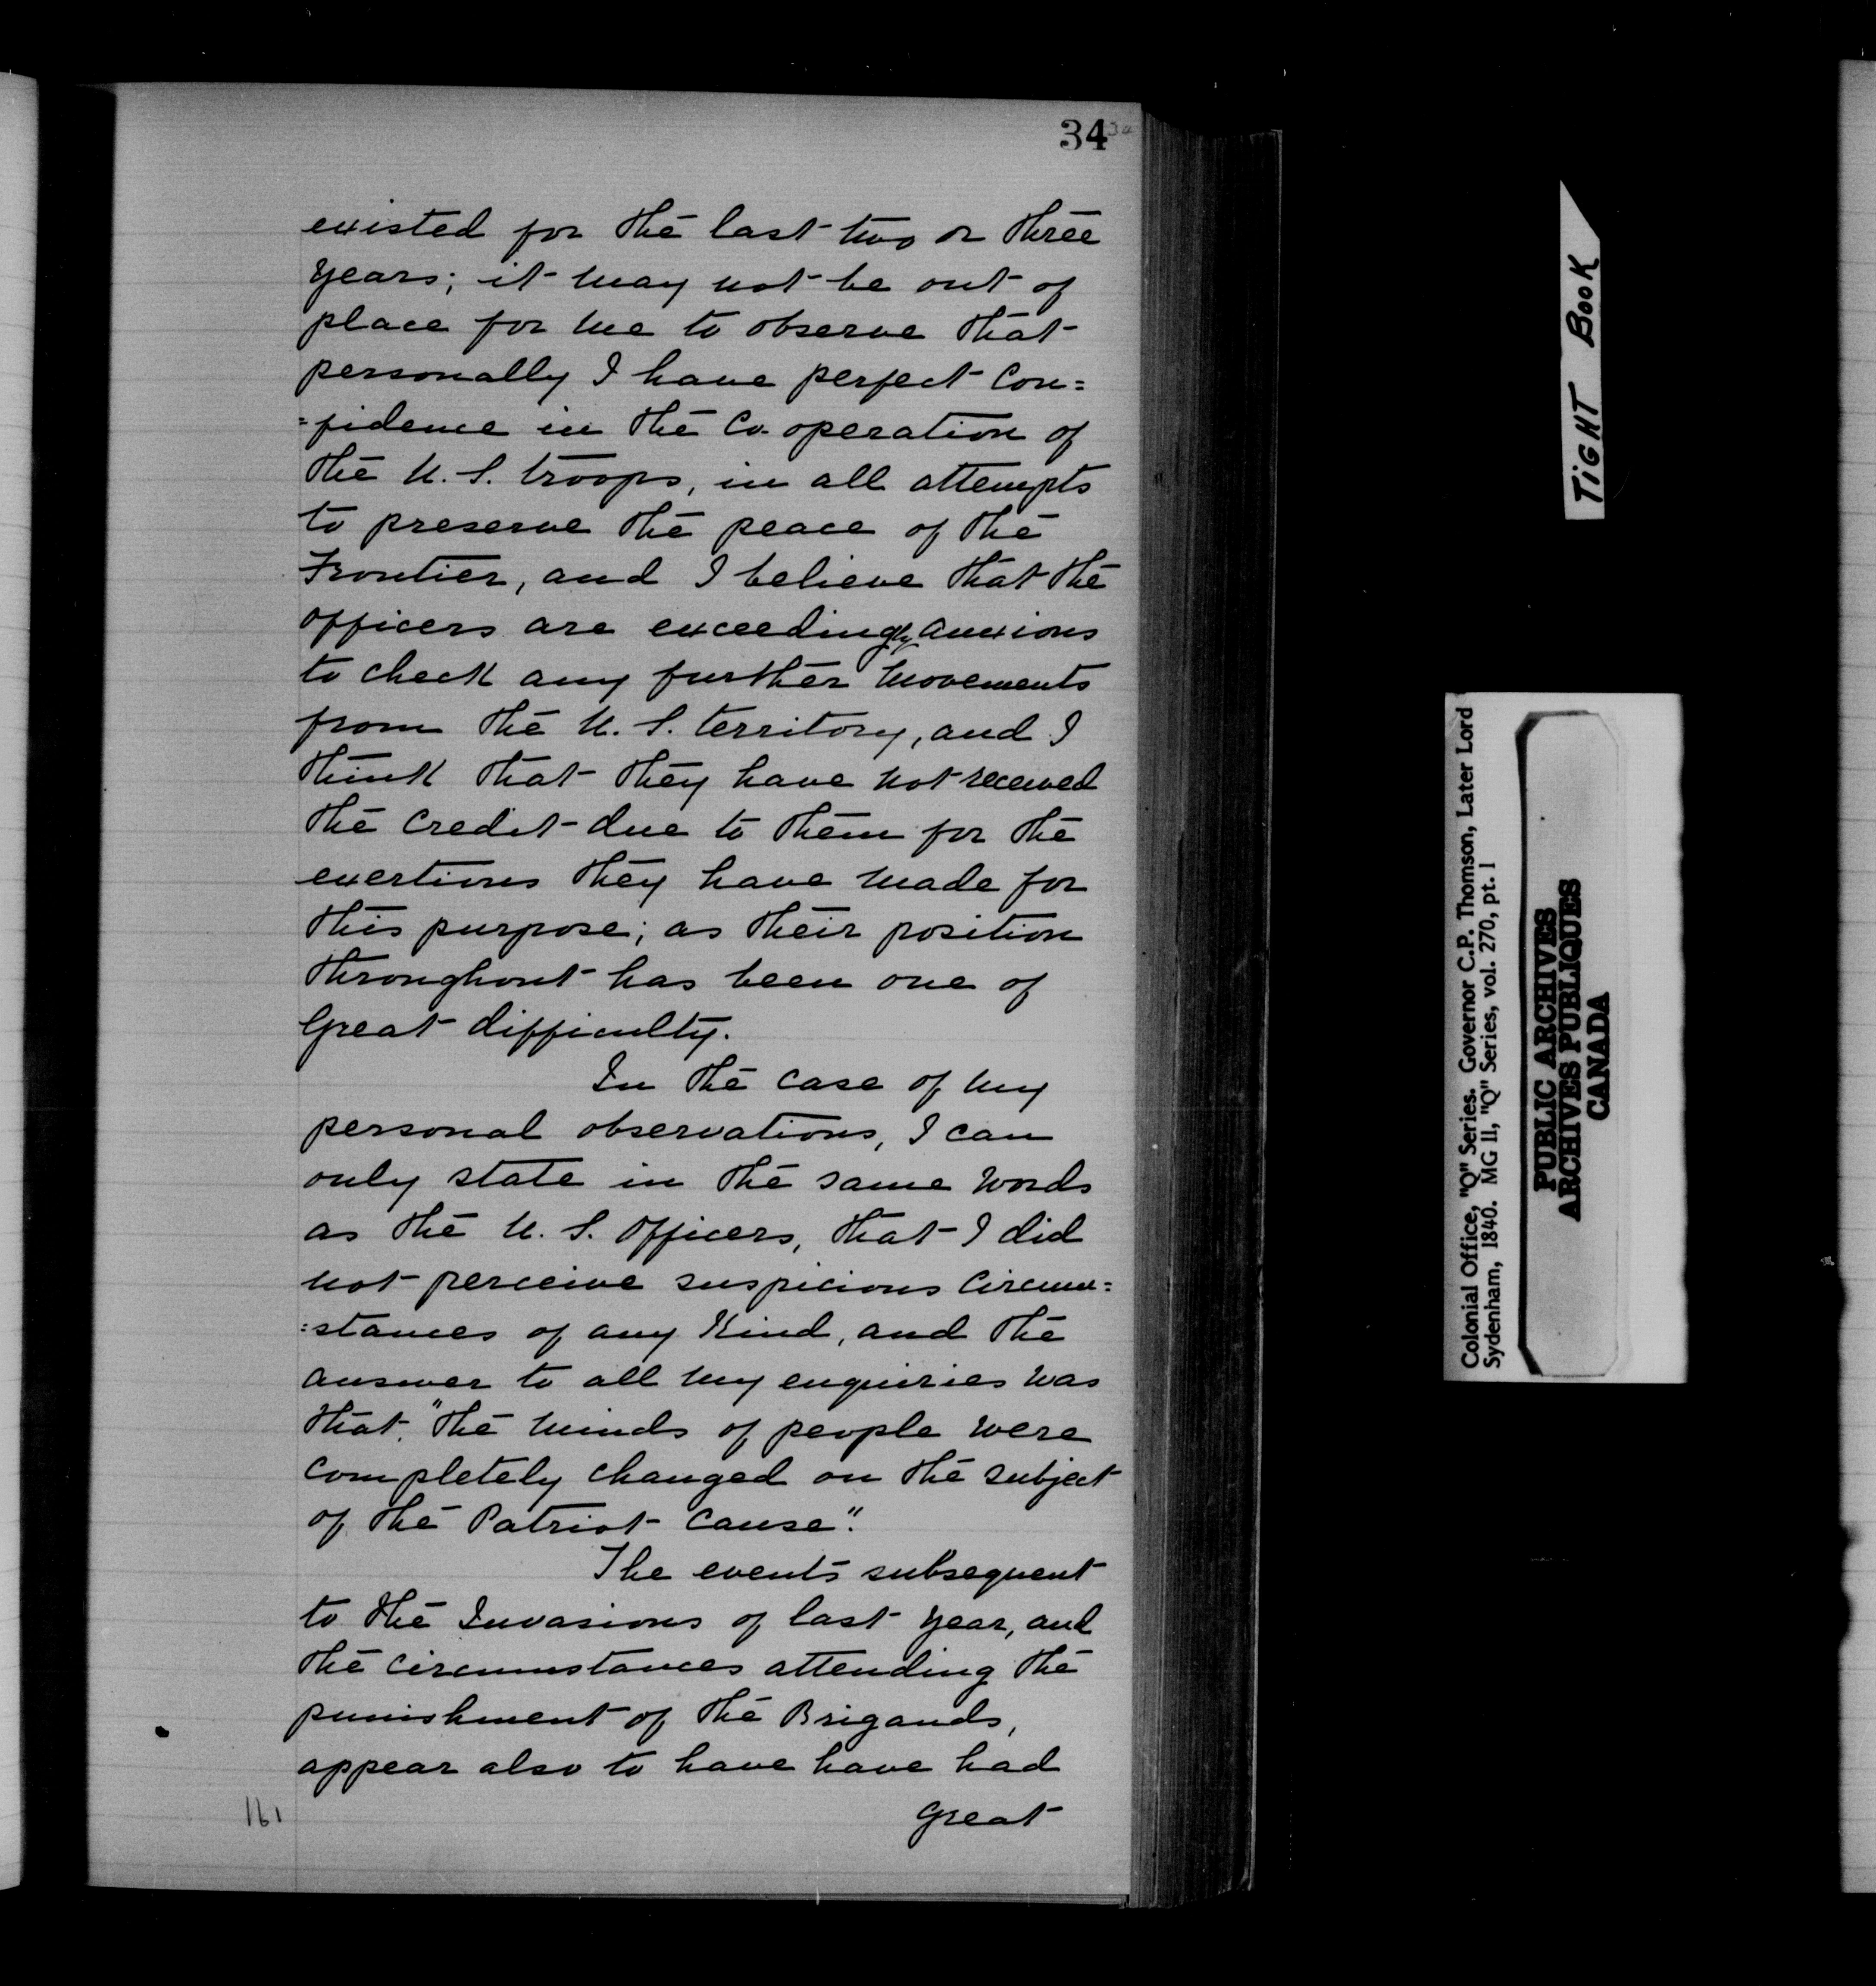 34 34
existed for the last two or three
years; it may not be out of
place for me to observe that
personally I have perfect Con=
=fidence in the Co-operation of
the U. S. troops, in all attempts
to preserve the peace of the
Frontier, and I believe that the
officers are exceedingly anxious
to check any further movements
from the U. S. territory, and I
think that they have not received
the credit due to them for the
exertions they have made for
this purpose; as their position
throughout has been one of
Great difficulty.
In the case of my
personal observations, I can
only state in the same words
as the U. S. Officers, that I did
not perceive suspicious Circum=
=stances of any Kind, and the
answer to all my enquiries was
that "the minds of people were
completely changed on the subject
of the Patriot Cause".
The events subsequent
to the Invasions of last year, and
the circumstances attending the
punishment of the Brigands,
appear also to have have had
great
161
TIGHT BOOK
Colonial Office, "Q" Series. Governor C.P. Thomson, Later Lord
Sydenham, 1840. MG 11, "Q" Series, vol. 270, pt. 1
PUBLIC ARCHIVES
ARCHIVES PUBLIQUES
CANADA